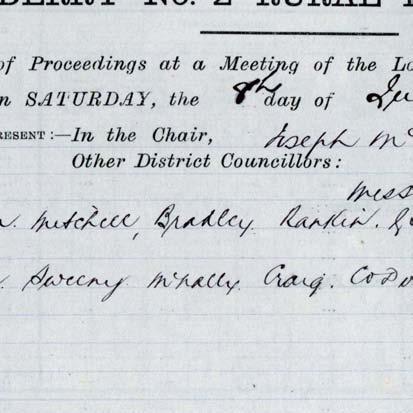 DERRY NO. 2 RURAL
of Proceedings at a Meeting of the Lo
n SATURDAY, the 8th day of Ju
RESENT:—In the Chair, Joseph Mc
Other District Councillors:
Mess
Mitchell, Bradley Rankin.
Sweeny McNally Craig.